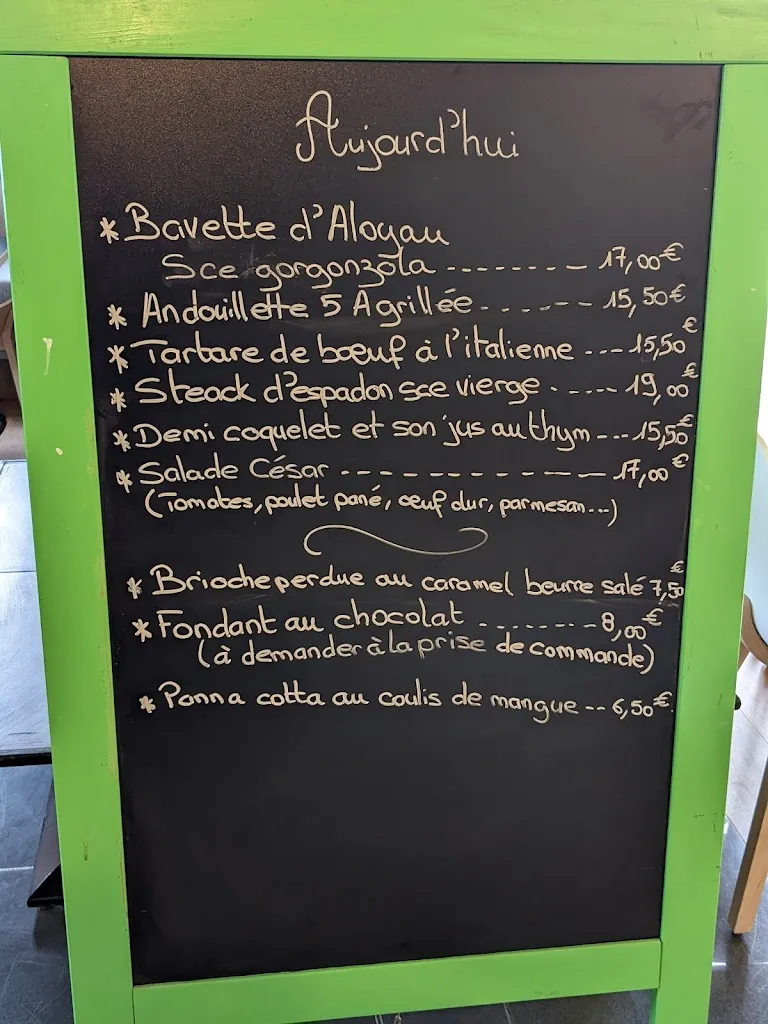 Aujourd'hui
* Bavette d'Aloyau
Sce gorgonzola -------- 17,00€
* Andouillette 5 A grillée. ...--- 15,50€
* Tartare de bœuf à l'italienne ---15,50€
* Steack d'espadon sce vierge. .---- 19,00€
* Demi coquelet et son jus au thym ---15,50€
* Salade César --- - - - - - - - --- 17,00€
(Tomates, poulet pané, œuf dur, parmesan...)
* Brioche perdue au caramel beurre salé 7,50€
* Fondant au chocolat ........--8,00€
(à demander à la prise de commande)
* Panna cotta au coulis de mangue -- 6,50€